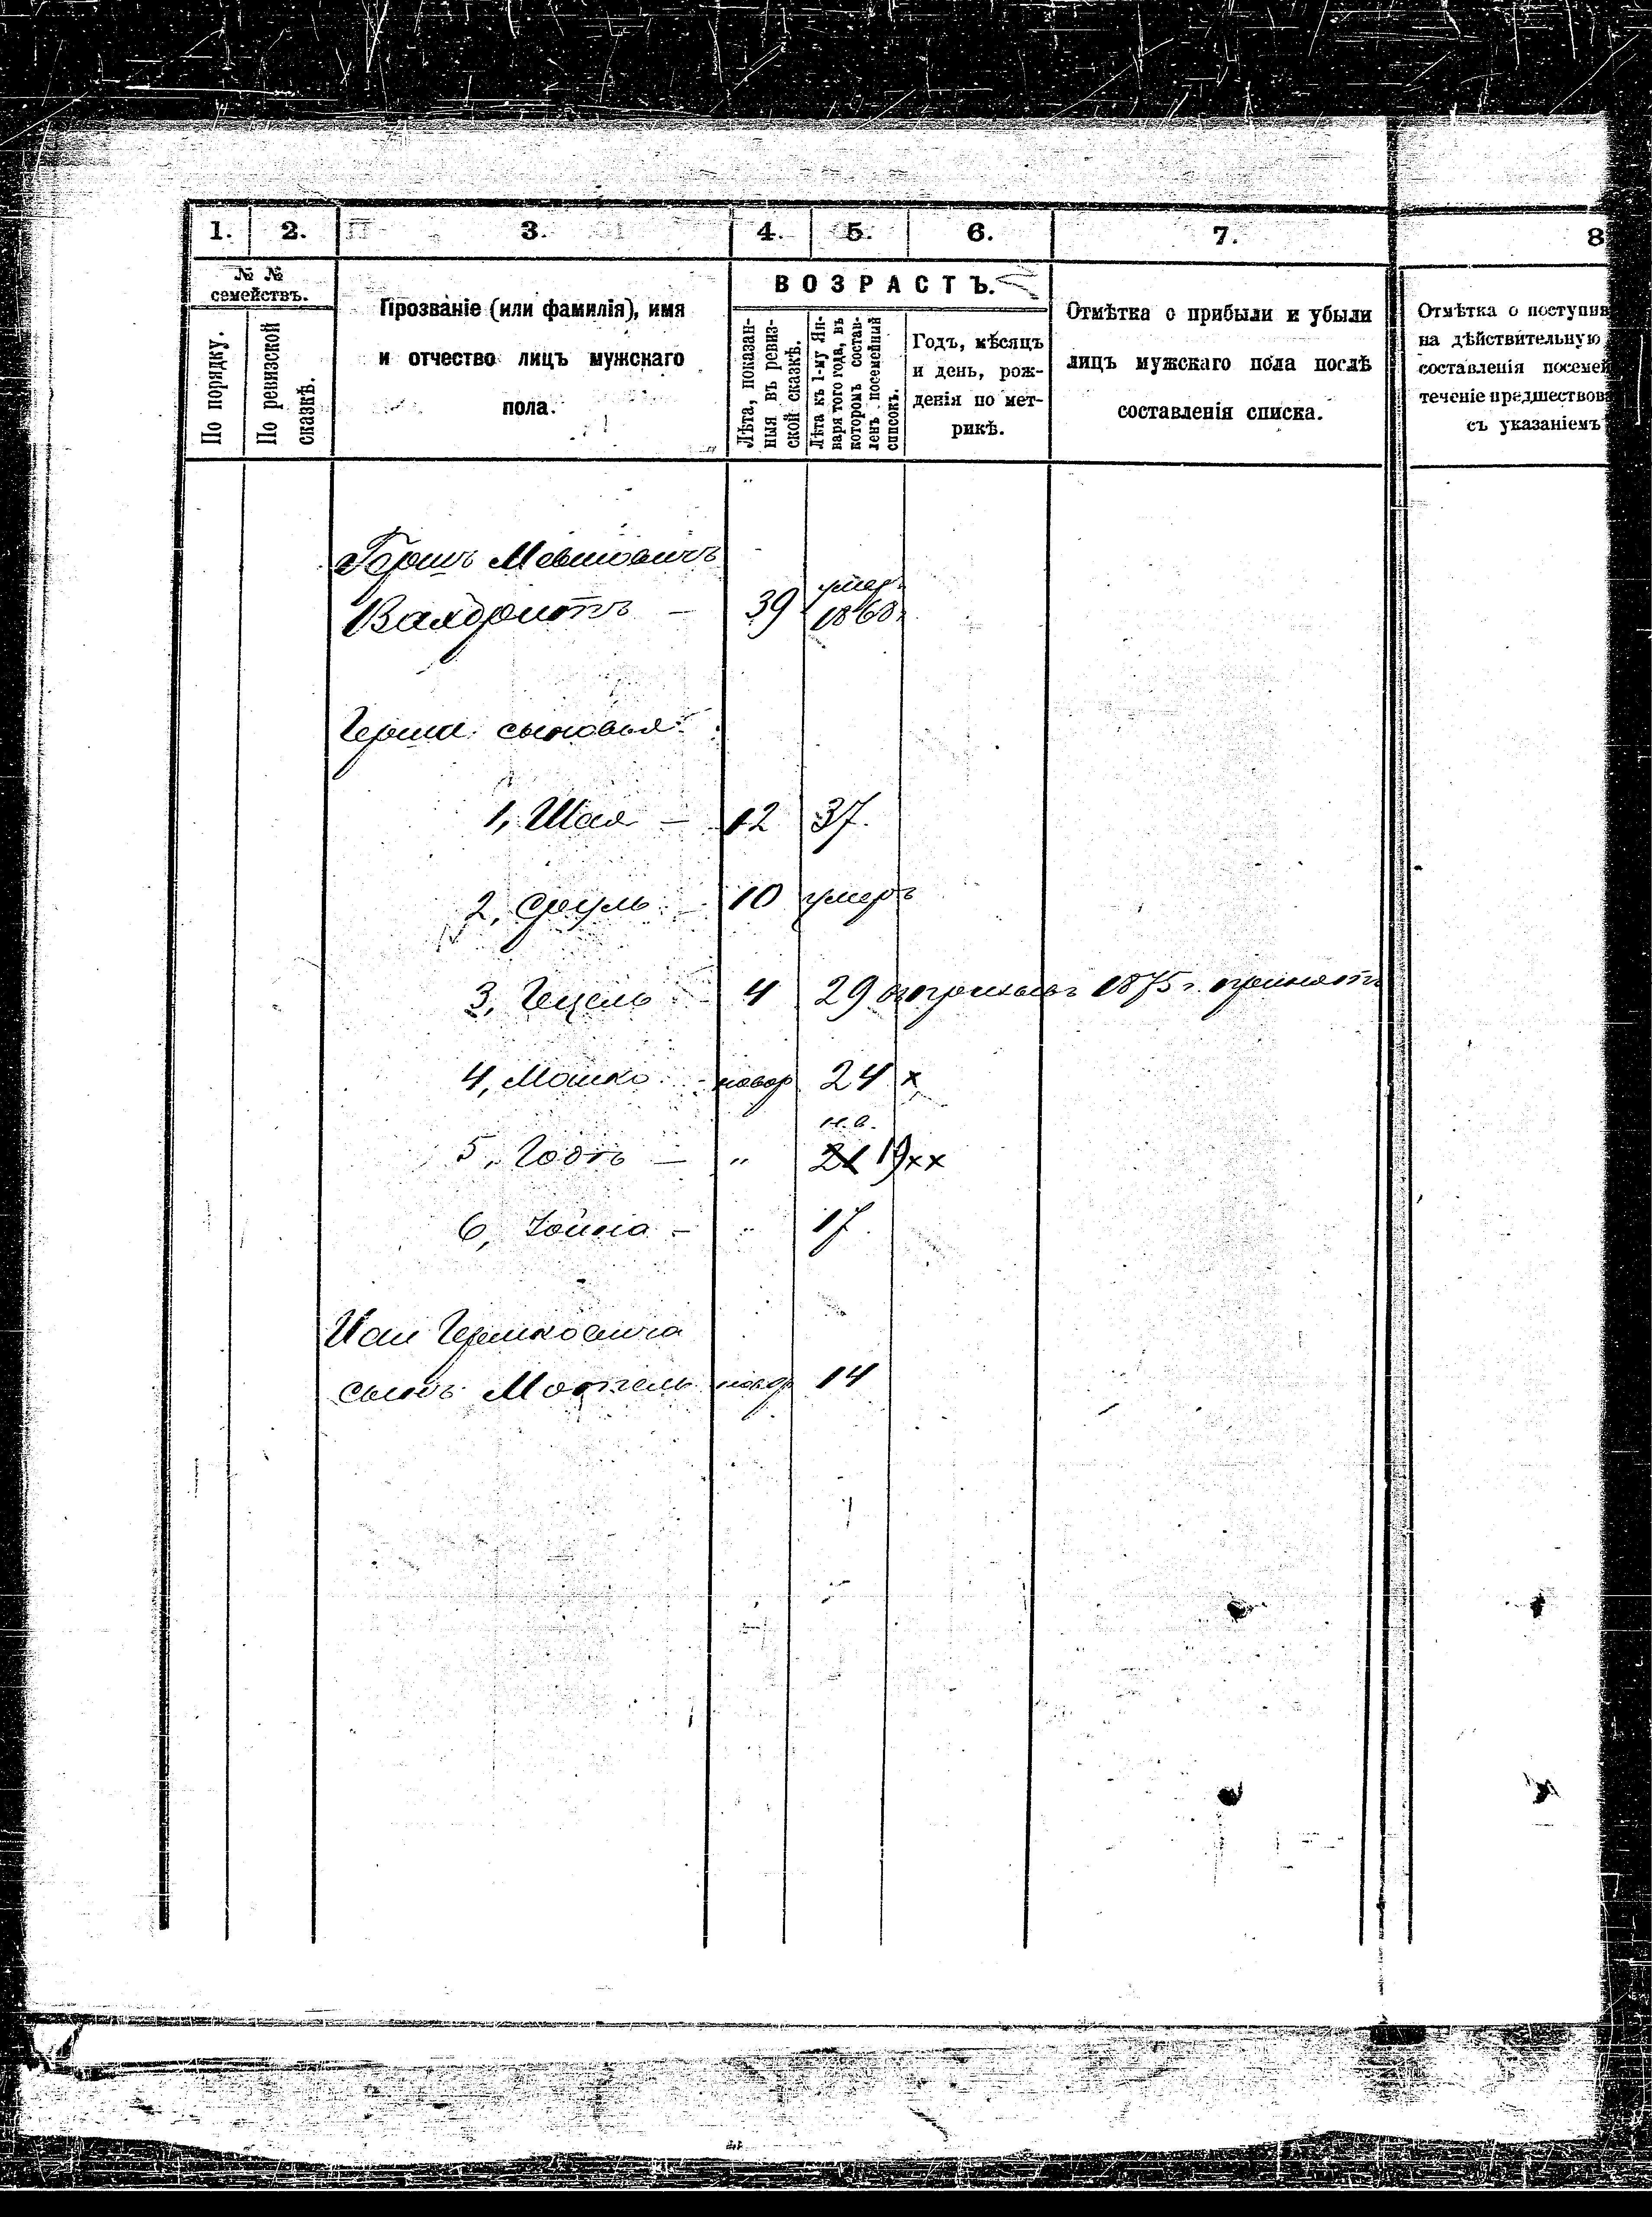 1. 2. 3. 4. 5. 6. 7. 8
№ №
семействъ.
По порядку.
По ревизской
сказкѣ.
Прозваніе (или фамилія), имя
и отчество лицъ мужскаго
пола.
ВОЗРАСТЪ.
Лѣта, показан-
ныя въ ревиз-
ской сказкѣ.
Лѣта къ 1-му Ян-
варя того года, въ
которомъ состав-
ленъ посемейный
списокъ.
Годъ, мѣсяцъ
и день, рож-
денія по мет-
рикѣ.
Отмѣтка о прибыли и убыли
лицъ мужскаго пола послѣ
составленія списка.
Отмѣтка о поступив
на дѣйствительную
составленія посемей
теченіе предшествова
съ указаніемъ
Гершъ
39 умер.
1868г
Герша сыновья:
1, Шая — 12 37.
2, Сруль — 10 умеръ
3, Гецель — 4 29 1875 г. принятъ
4, Мошко — новор 24 х
н.в.
5, — " 21 19 хх
6, Зойна — " 17.
Шаи Гершковича
сынъ Мотель новор 14